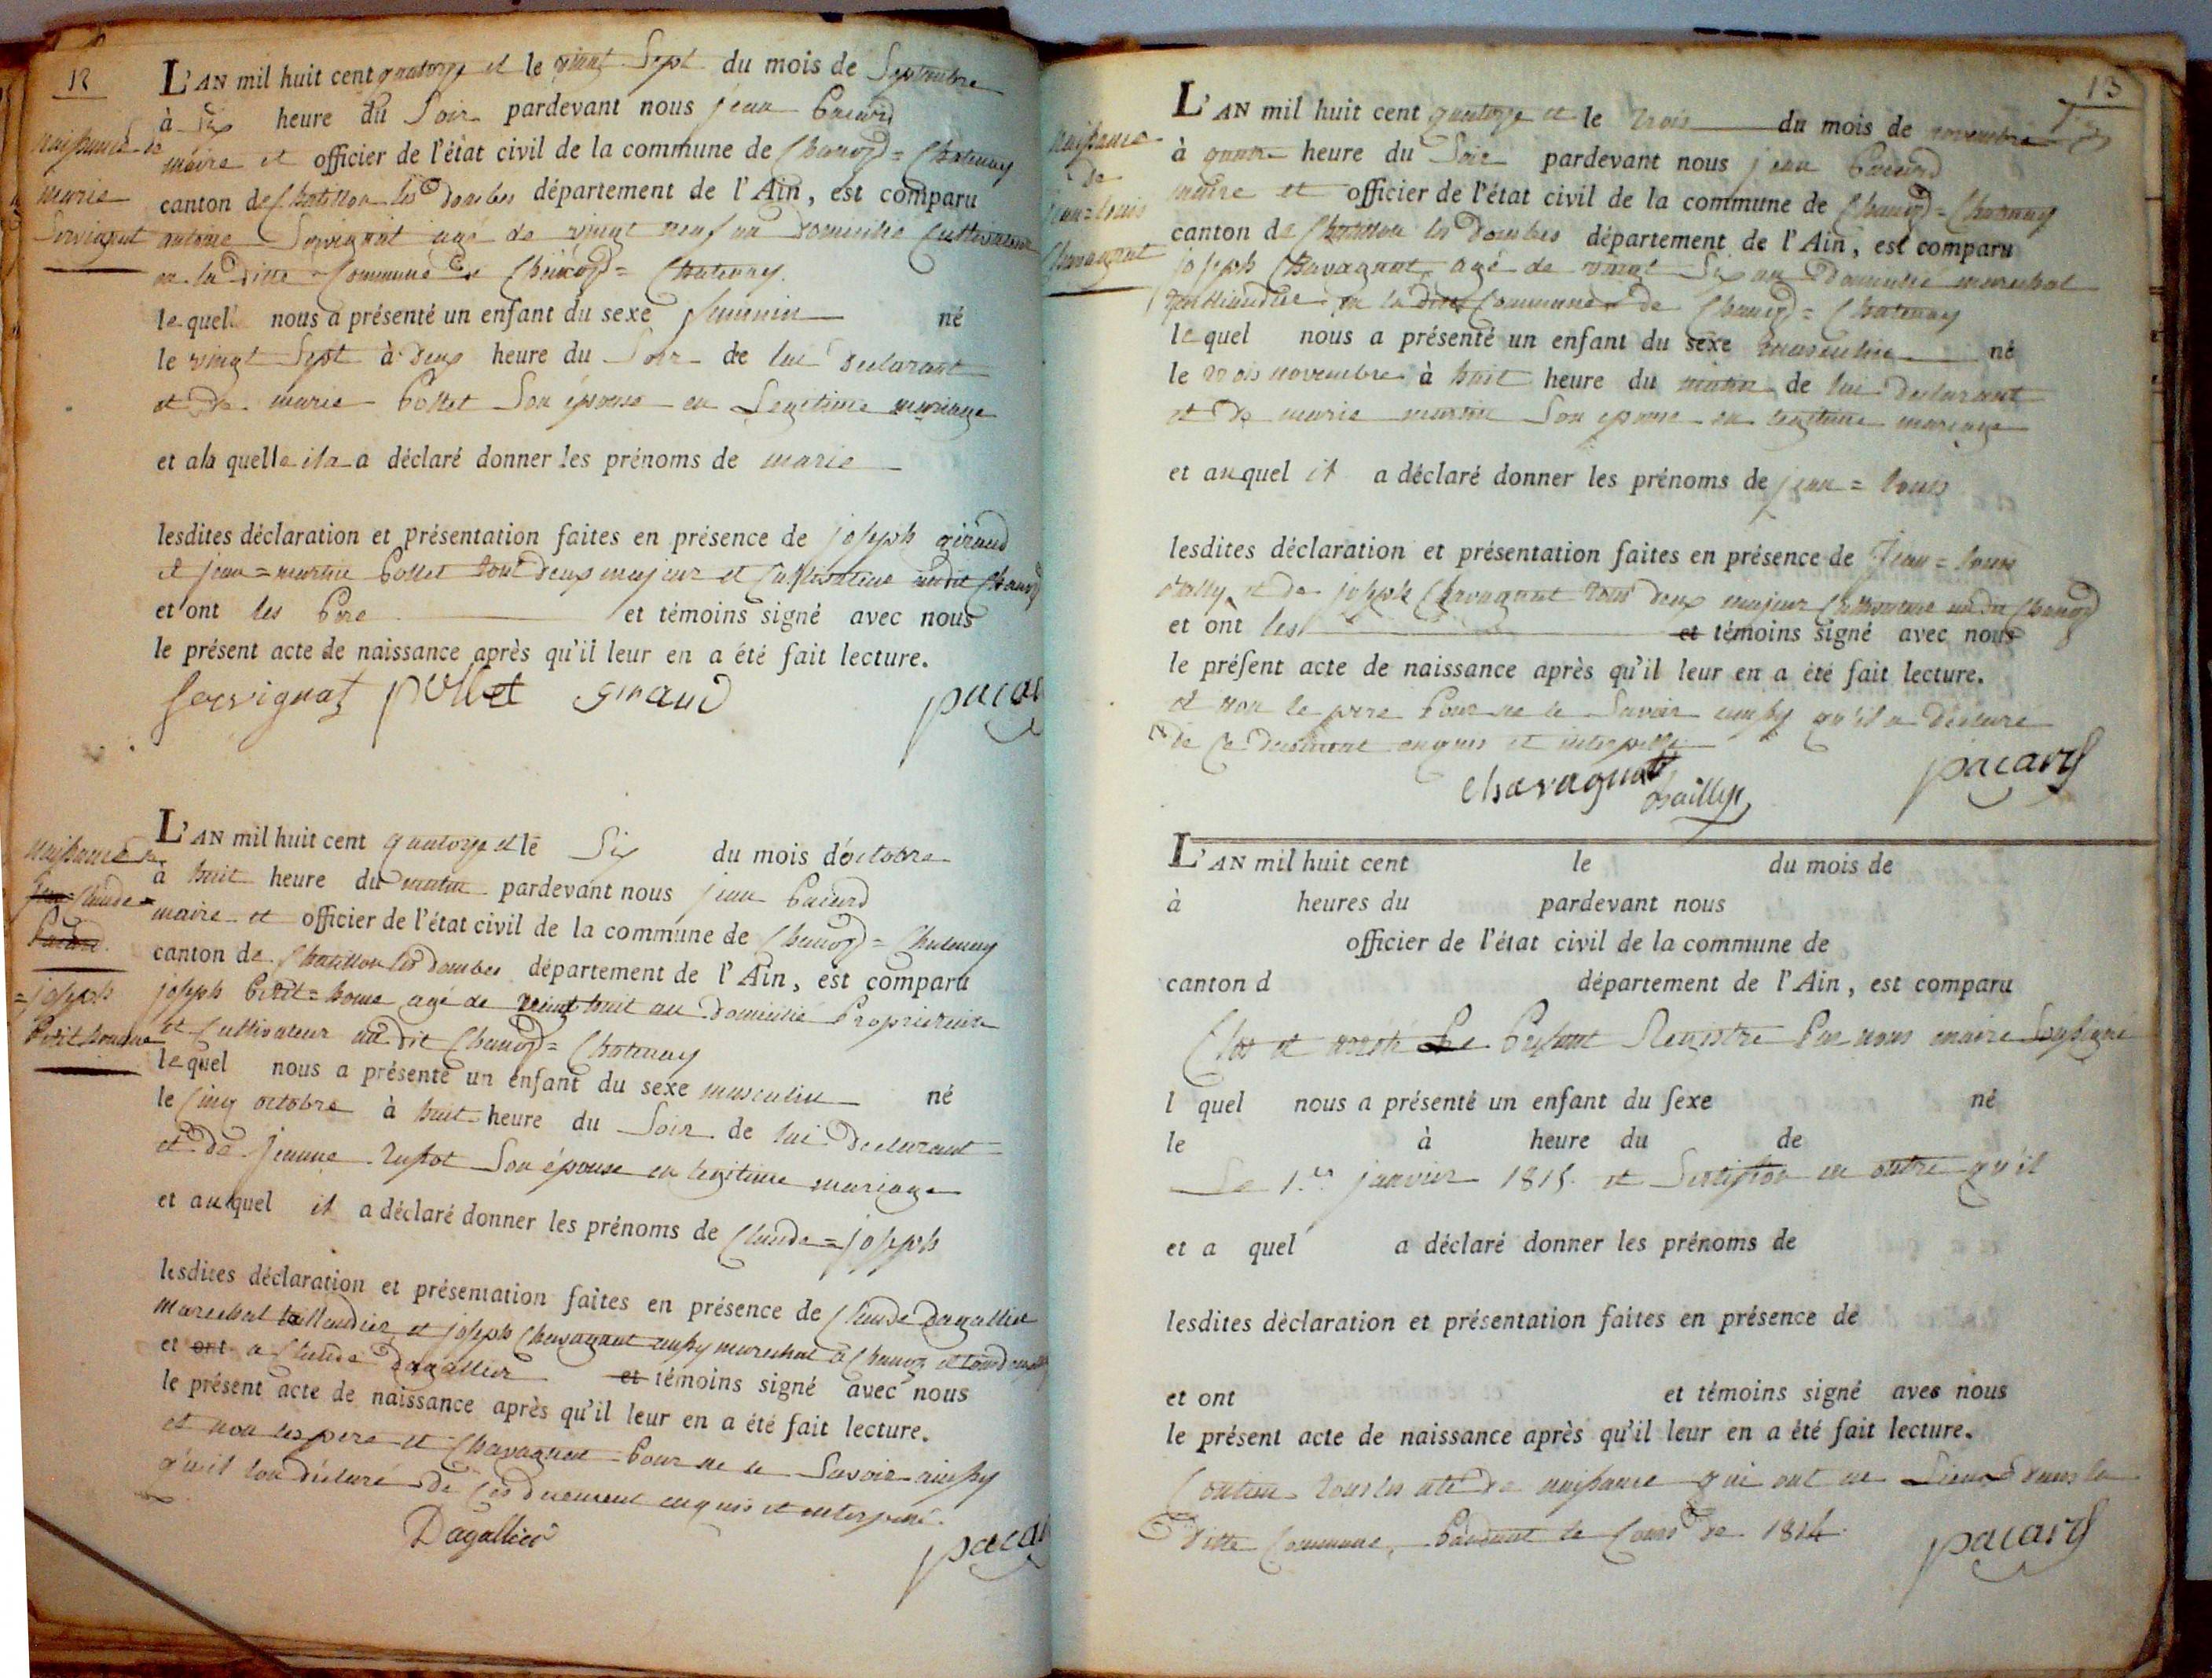 12
naissance de
marie
Servignat
L'AN mil huit cent quatorze et le vingt Sept du mois de Septembre
à Six heure du Soir pardevant nous jean Pacard
maire et officier de l'état civil de la commune de Chanoz = Chatenay
canton de Chatillon les dombes département de l'Ain, est comparu
antoine Servignat agé de vingt neuf an domicilié Cultivateur
en la ditte Commune de Chanoz = Chatenay.
le quel nous a présenté un enfant du sexe feminin né
le vingt Sept à deux heure du Soir de lui declarant
et de marie Pollet Son épouse en Legitime mariage
et ala quelle il a a déclaré donner les prénoms de marie
lesdites déclaration et présentation faites en présence de joseph giraud
et jean = martin Pollet tout deux majeur et Cultivateur audit Chanoz
et ont les Pere et témoins signé avec nous
le présent acte de naissance après qu'il leur en a été fait lecture.
Servignat pollet giraud pacar
naissance de
jean Claude =
Pacard.
= joseph
Petit homme
L'AN mil huit cent quatorze et le Six du mois d'octobre
à huit heure du matin pardevant nous jean Pacard
maire et officier de l'état civil de la commune de Chanoz = Chatenay
canton de Chatillon les dombes département de l'Ain, est comparu
joseph Petit = home agé de vingt huit an domicilié Proprietaire
et Cultivateur au dit Chanoz = Chatenay
le quel nous a présenté un enfant du sexe masculin né
le Cinq octobre à huit heure du Soir de lui declarant =
et de jeanne Son épouse en legitime mariage
et au quel il a déclaré donner les prénoms de Claude = joseph
lesdites déclaration et présentation faites en présence de Claude Dagallier
marechal taillandier et joseph Chavagnat aussy marechal a Chanoz et
et ont a Claude Dagallier et témoins signé avec nous
le présent acte de naissance après qu'il leur en a été fait lecture.
et non les pere et Chavagnat Pour ne le Savoir ainssy
qu'il lon déclaré de Ces duement enquis et interpellé.
Dagallier pacar
13
naissance
de
jean = louis
Chavagnat
L'AN mil huit cent quatorze et le trois du mois de novembre
à quatre heure du Soir pardevant nous jean Pacard
maire et officier de l'état civil de la commune de Chanoz = Chatenay
canton de Chatillon les Dombes département de l'Ain, est comparu
joseph Chavagnat agé de vingt Six an Domicilié marechal
taillandier en la ditte Commune de Chanoz = Chatenay
le quel nous a présenté un enfant du sexe masculin né
le trois novembre à huit heure du matin de lui declarant
et de marie martin Son epouse en legitime mariage
et au quel il a déclaré donner les prénoms de jean = louis
lesdites déclaration et présentation faites en présence de Jean = louis
et de joseph Chavagnat tout deux majeur Cultivateur audit Chanoz
et ont les et témoins signé avec nous
le présent acte de naissance après qu'il leur en a été fait lecture.
et non le pere Pour ne le Savoir ainssy qu'il a déclaré
de Ce duement enquis et interpellé
Chavagnat pacard
L'AN mil huit cent le du mois de
à heures du pardevant nous
officier de l'état civil de la commune de
canton d département de l'Ain, est comparu
Clos et arrêté Le Présant Registre Par nous maire Soussigné
l quel nous a présenté un enfant du sexe né
le à heure du de
Le 1.er janvier 1815. et en outre qu'il
et a quel a déclaré donner les prénoms de
lesdites déclaration et présentation faites en présence de
et ont et témoins signé avec nous
le présent acte de naissance après qu'il leur en a été fait lecture.
Contien tous les de naissance qui ont Dans la
ditte Commune, Pandant le Cours de 1814.
pacard